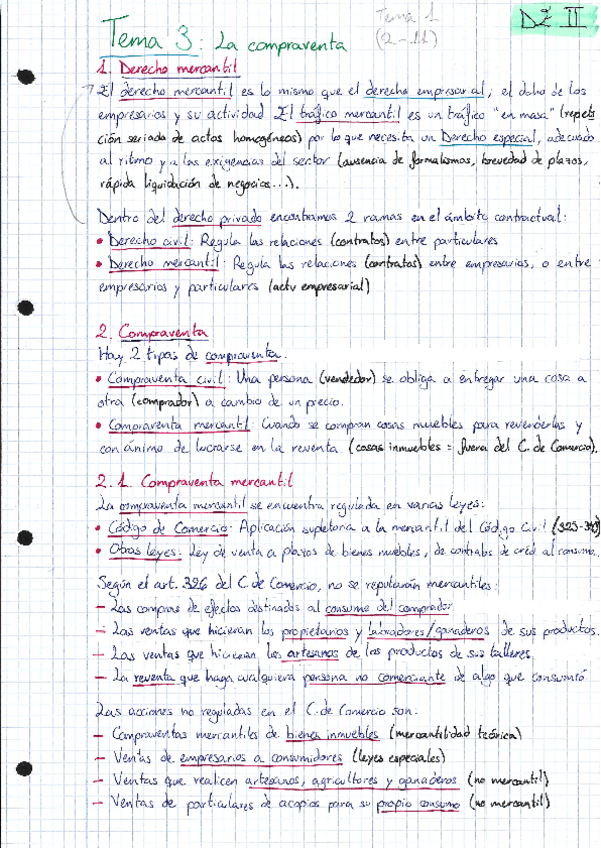 Tema 1
(2-11)
DE II
Tema 3: La compraventa
1. Derecho mercantil
El derecho mercantil es lo mismo que el derecho empresarial, el dcho de los
empresarios y su actividad. El tráfico mercantil es un tráfico "en masa" (repeti
ción seriada de actos homogéneos) por lo que necesita un Derecho especial, adecuado
al ritmo y a las exigencias del sector (ausencia de formalismos, brevedad de plazos,
rápida liquidación de negocios...).
Dentro del derecho privado encontramos 2 ramas en el ámbito contractual:
• Derecho civil: Regula las relaciones (contratos) entre particulares
• Derecho mercantil: Regula las relaciones (contratos) entre empresarios, o entre
empresarios y particulares (actv empresarial)
2. Compraventa
Hay 2 tipos de compraventa.
• Compraventa civil: Una persona (vendedor) se obliga a entregar una cosa a
otra (comprador) a cambio de un precio.
• Compraventa mercantil: Cuando se compran cosas muebles para revenderlas y
con ánimo de lucrarse en la reventa (cosas inmuebles = fuera del C. de Comercio).
2.1. Compraventa mercantil
La compraventa mercantil se encuentra regulada en varias leyes:
• Código de Comercio: Aplicación supletoria a la mercantil del Código Civil
• Otras leyes: Ley de venta a plazos de bienes muebles, de contratos de créd al consumo...
Según el art. 326 del C. de Comercio, no se reputarán mercantiles:
- Las compras de efectos destinados al consumo del comprador
- Las ventas que hicieran los propietarios y labradores/ganaderos de sus productos.
- Las ventas que hicieran los artesanos de los productos de sus talleres.
- La reventa que haga cualquiera persona no comerciante de algo que consumió
Las acciones no reguladas en el C. de Comercio son:
- Compraventas mercantiles de bienes inmuebles (mercantilidad teórica)
- Ventas de empresarios a consumidores (leyes especiales)
- Ventas que realicen artesanos, agricultores y ganaderos (no mercantil)
- Ventas de particulares de acopios para su propio consumo (no mercantil)